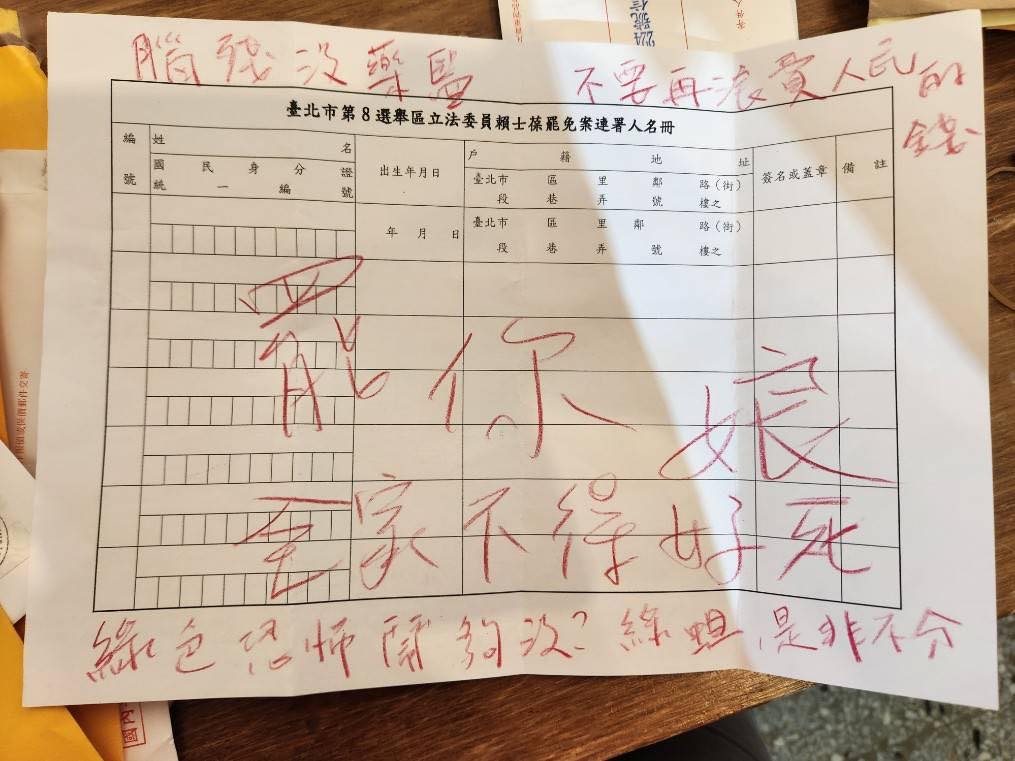 腦殘沒藥醫 不要再浪費人民的錢
臺北市第8選舉區立法委員賴士葆罷免案連署人名冊
編號 姓名 出生年月日 戶籍地址 簽名或蓋章 備註
國民身分證統一編號 臺北市 區 里 鄰 路(街)
段 巷 弄 號 樓之
年 月 日 臺北市 區 里 鄰 路(街)
段 巷 弄 號 樓之
罷你娘
全家不得好死
綠色恐怖鬧夠沒?綠蛆是非不分
國內